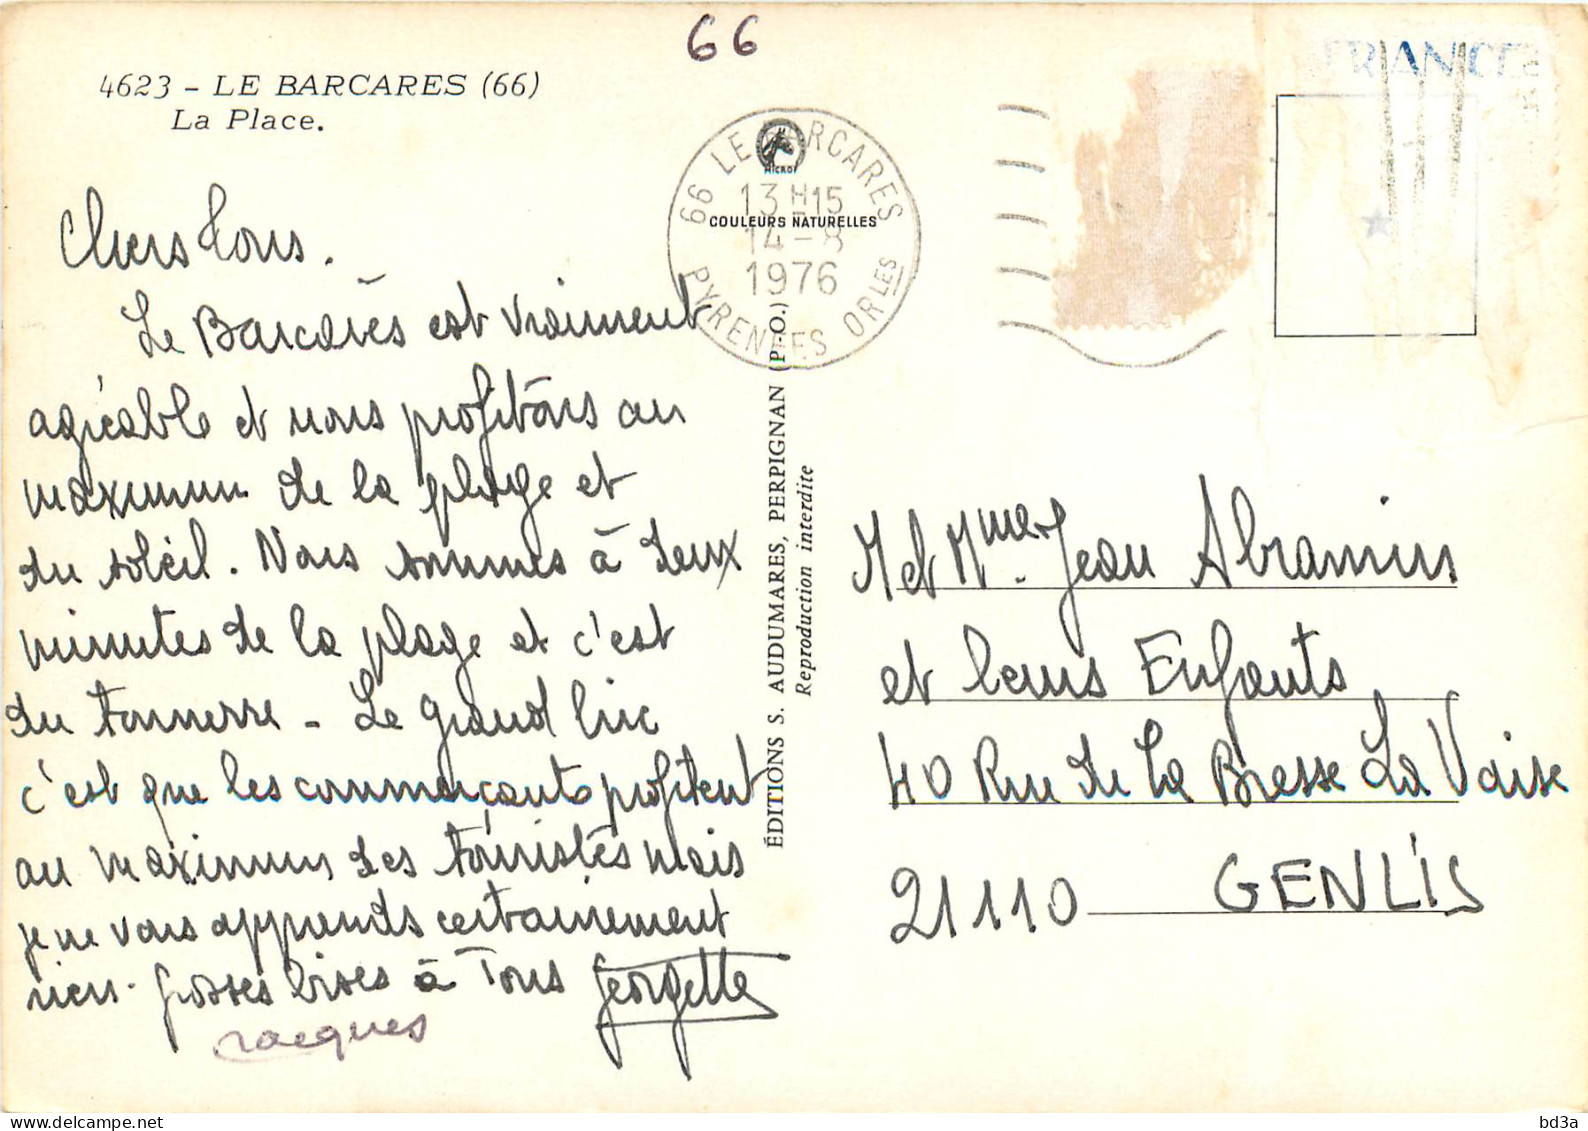 66
4623 - LE BARCARES (66)
La Place.
Chers Tous.
Le Barcarès est vraiment
agréable et nous profitons au
maximum de la plage et
du soleil. Nous sommes à deux
minutes de la plage et c'est
du tonnerre - Le grand truc
c'est que les commerçants profitent
au maximum des touristes mais
je ne vous apprends certainement
rien. Grosses bises à Tous Georgette
Jacques
66 LE BARCARES
13H15
14-8
1976
PYRENEES ORLES
MICKOF
COULEURS NATURELLES
ÉDITIONS S. AUDUMARES, PERPIGNAN (P.-O.)
Reproduction interdite
FRANCE
M et Mme Jean Abramin
et leurs Enfants
40 Rue de la Bresse La Vaise
21110 GENLIS
bd3a